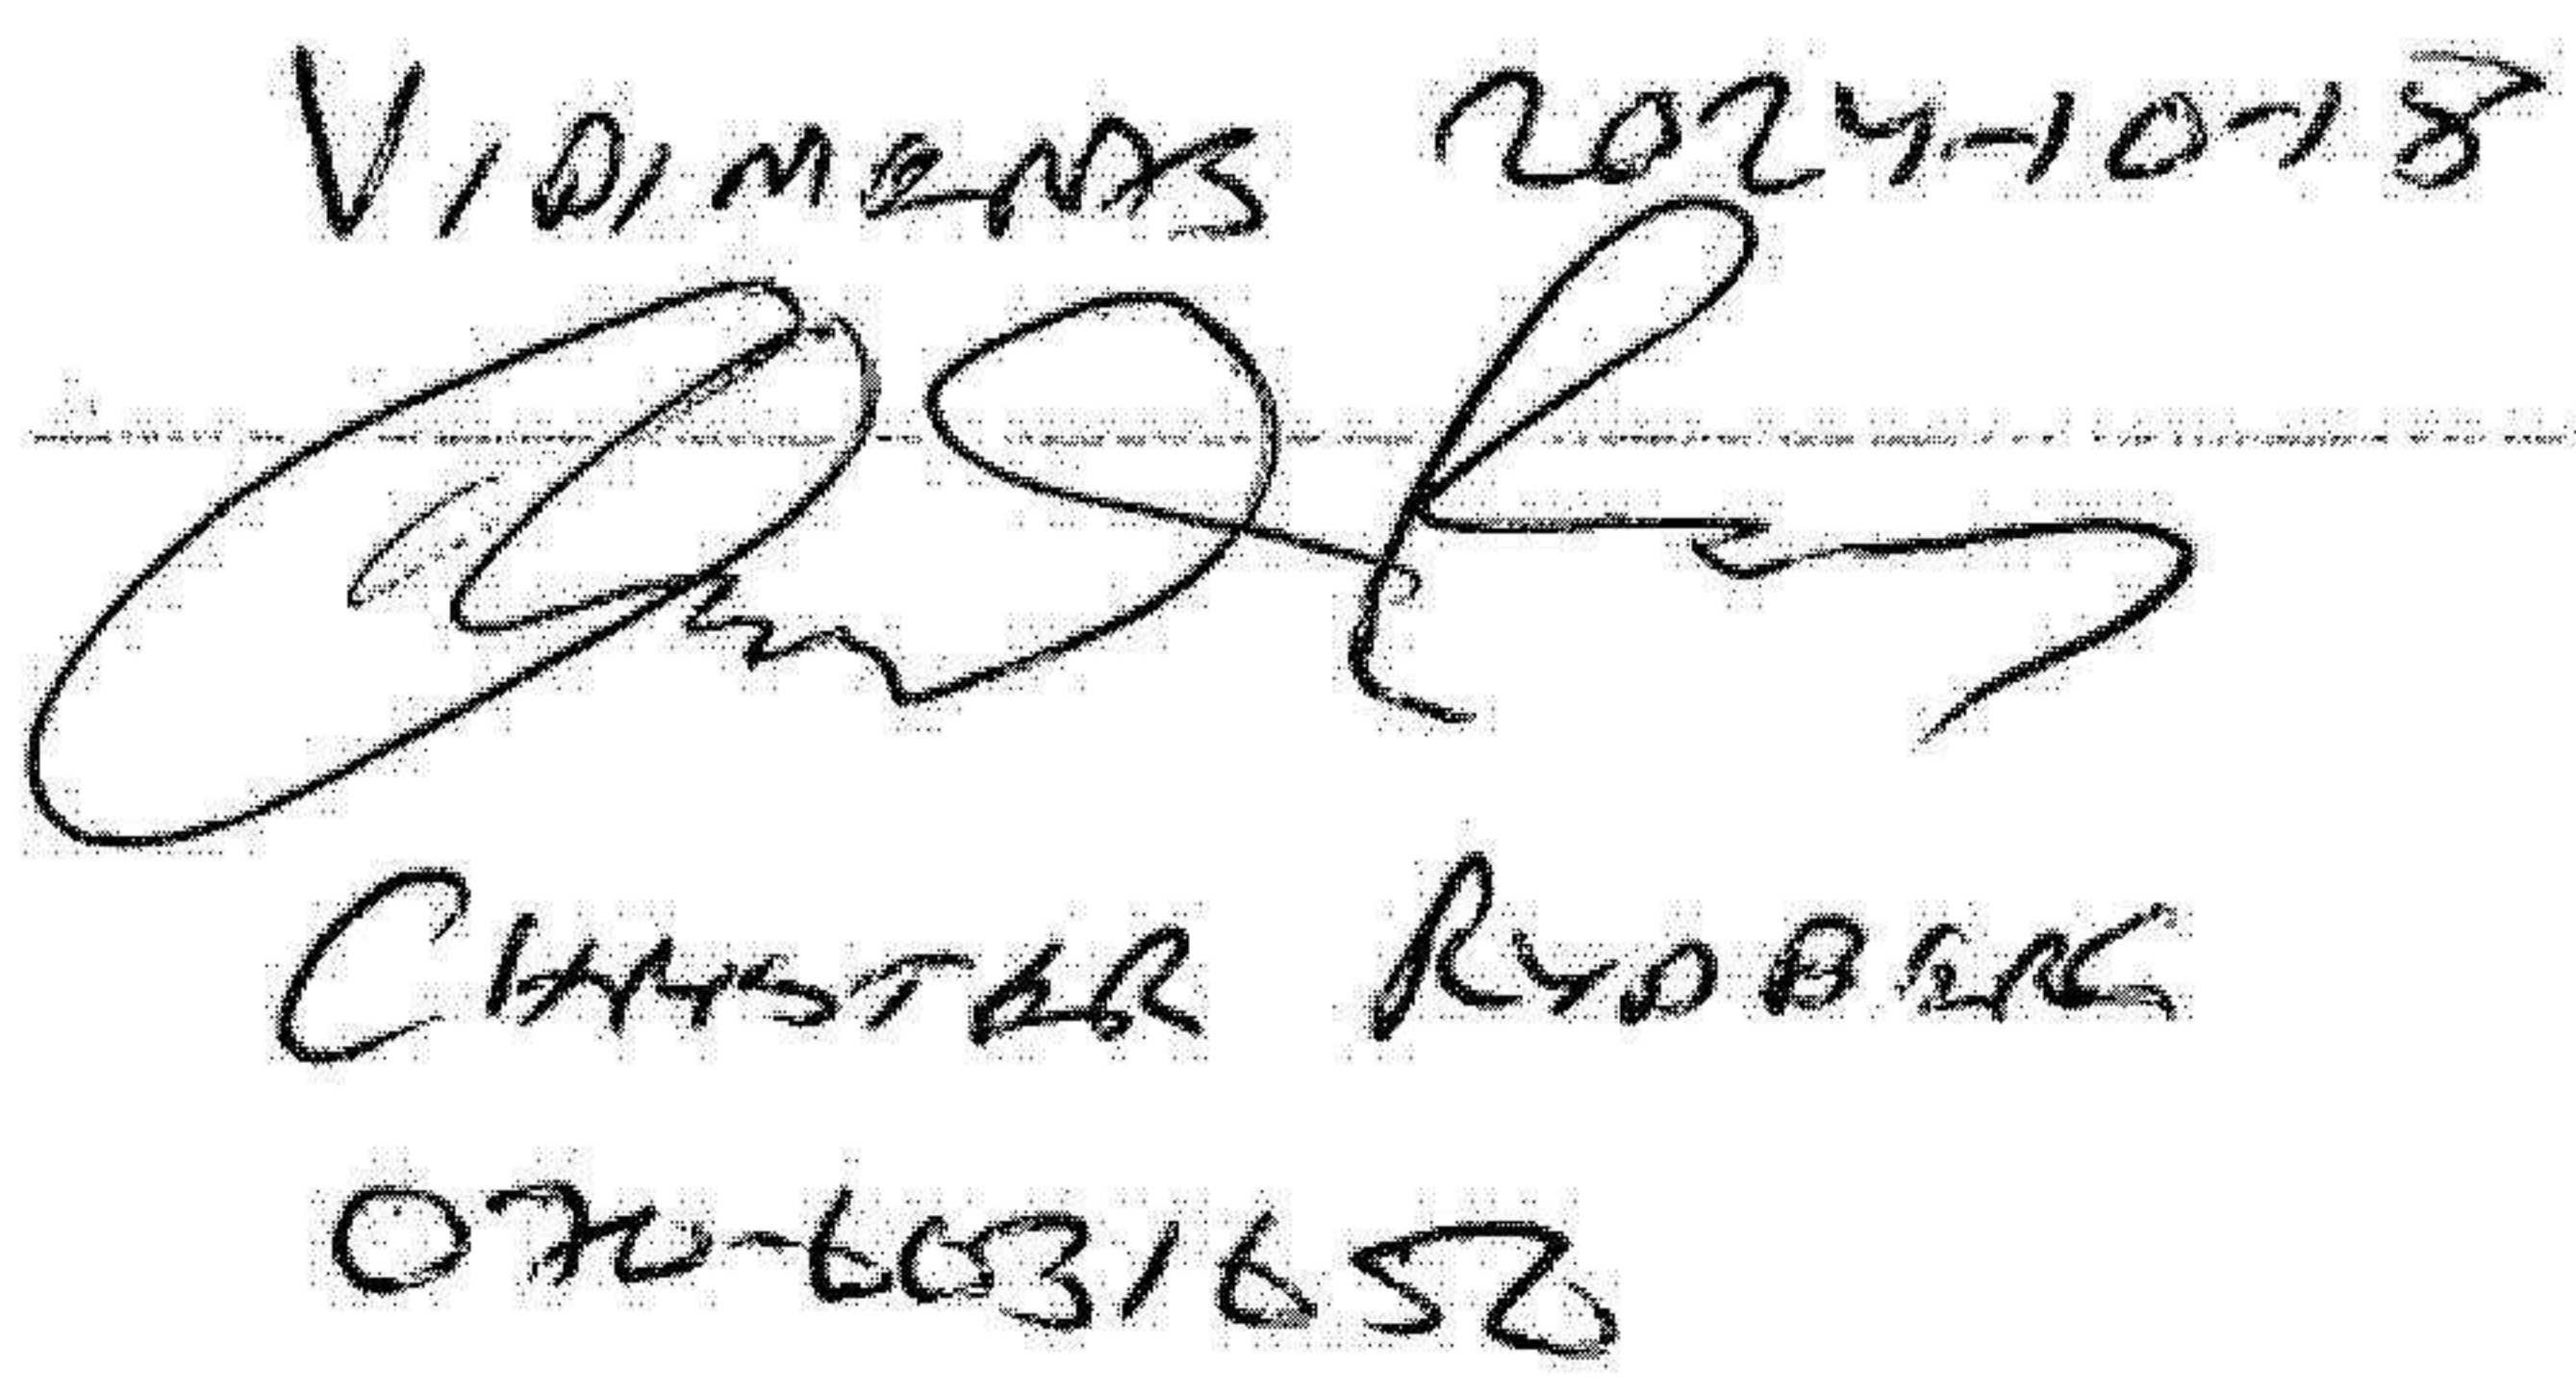 VIDIMERAS 2024-10-18
CHRYSTER RYDBERG
070-6031658